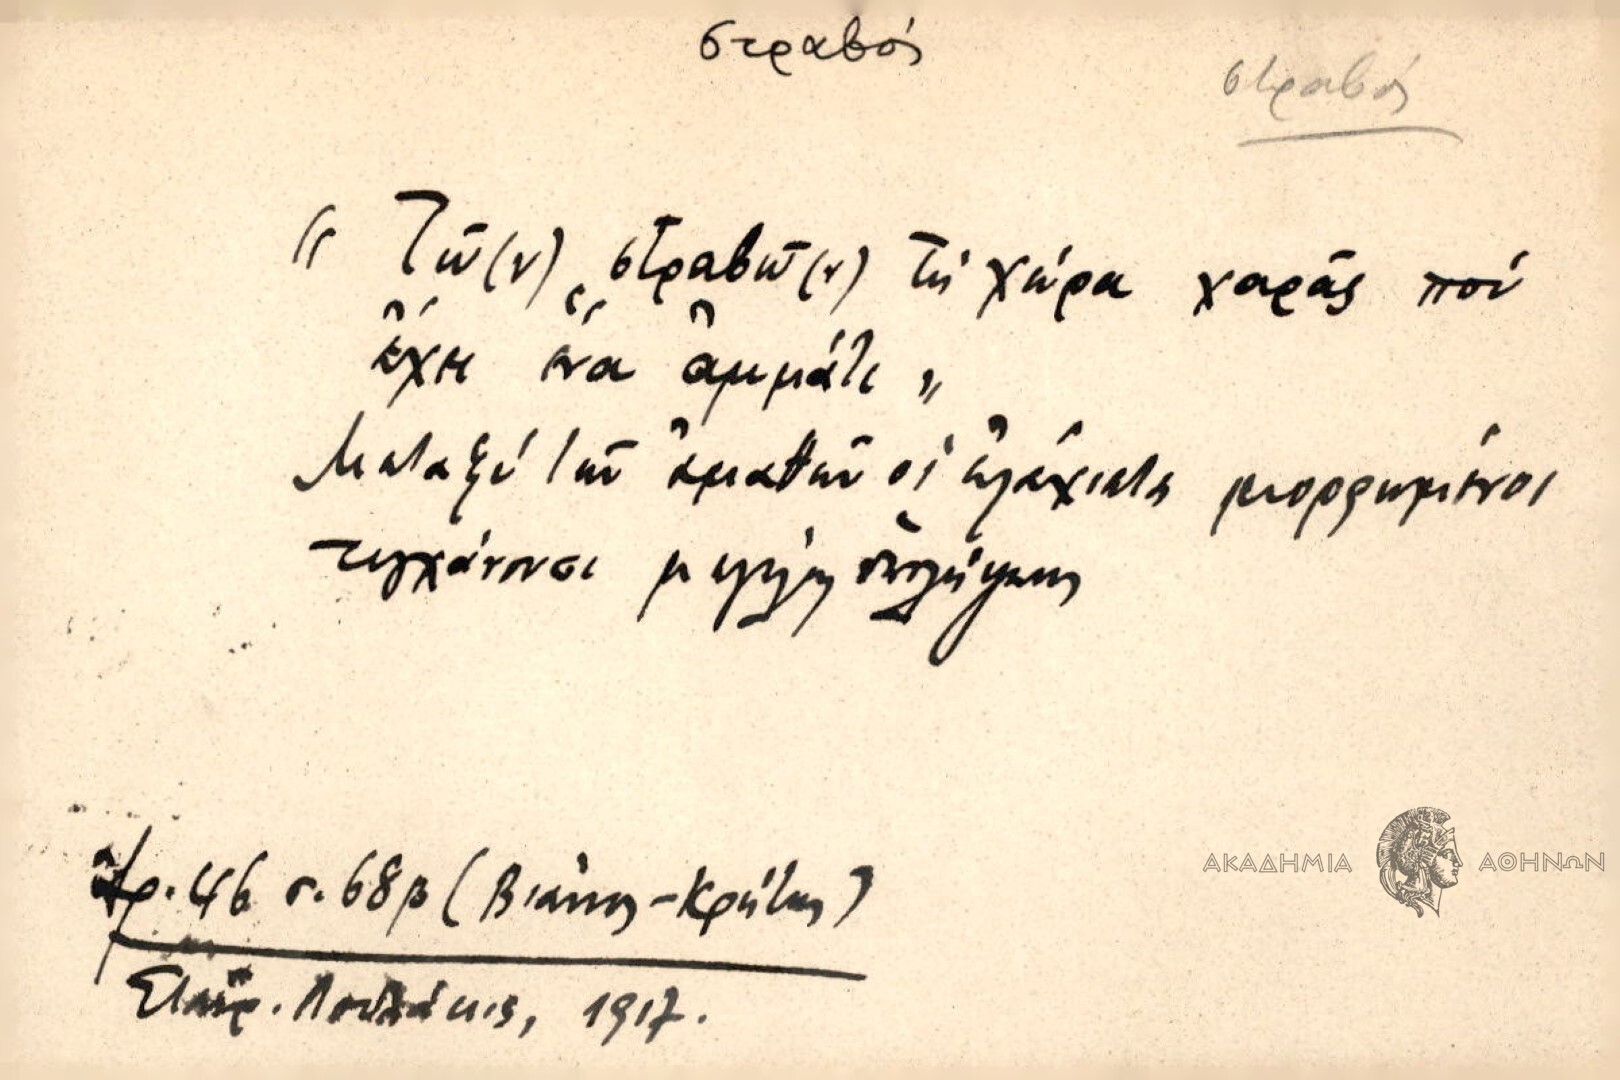 στραβός
στραβός
"Τῶ(ν) στραβῶ(ν) τὴ χώρα χαρᾶς ποὺ
ἔχει ἕνα ἀμμάτι"
Μεταξὺ τῶν ἀμαθῶν οἱ ἐλάχιστα μορφωμένοι
τυγχάνουσι μεγάλης ὑπολήψεως
ἀρ. 46 σ. 68β (Βιάννος-Κρήτης)
Σταύρ. 1917.
ΑΚΑΔΗΜΙΑ ΑΘΗΝΩΝ